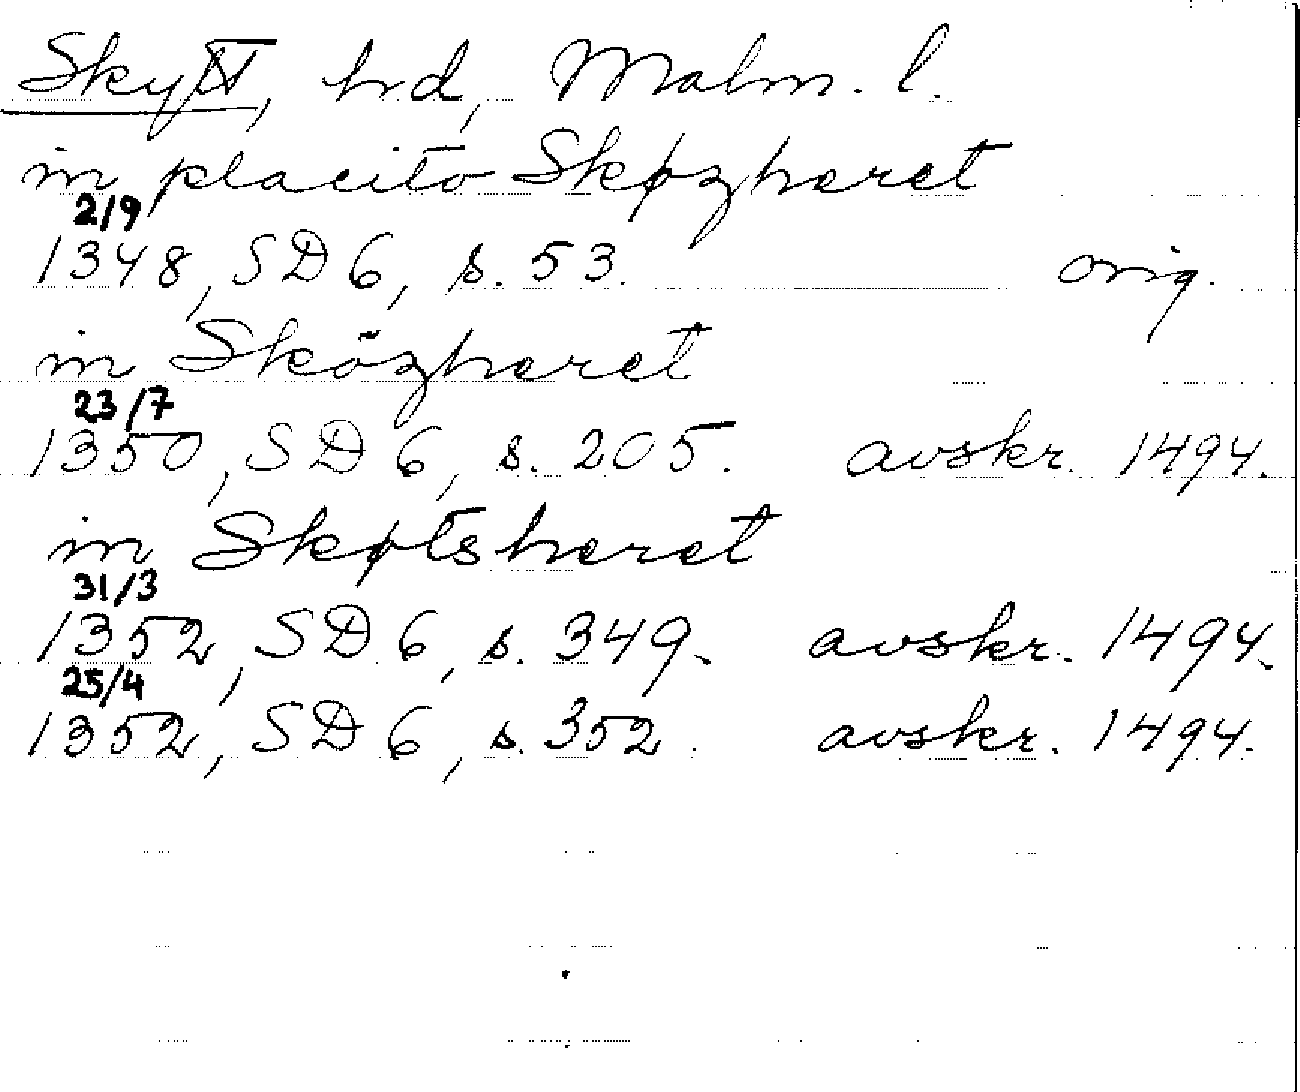 Skytt, hd, Malm. l.
in placito Skøzheret
2/9
1348, SD 6, s. 53. orig.
in Sközheret
23/7
1350, SD 6, s. 205. avskr. 1494.
in Skøtsheret
31/3
1352, SD 6, s. 349. avskr. 1494.
25/4
1352, SD 6, s. 352. avskr. 1494.